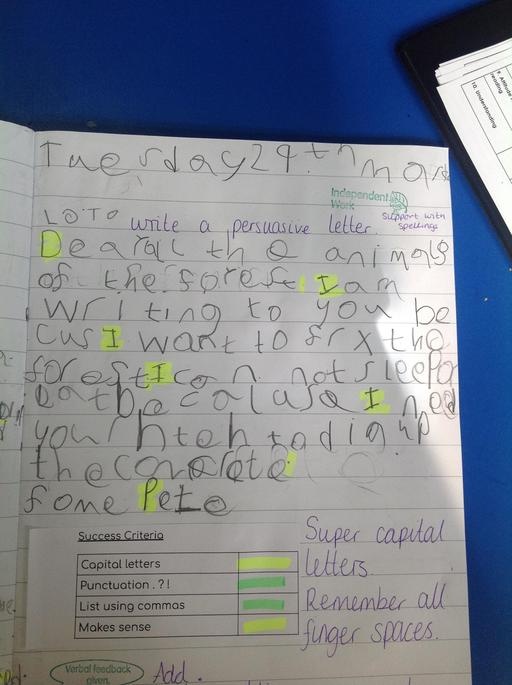 Tuesday 29th Mars
Independent
Work
LO To write a persuasive letter.
Support with
spellings
Dear all the animals
of the forest. I am
writing to you be
cus I want to fix the
forest I can not sleep or
eat becalusa I need
your hteh to dig up
the concrete.
fome Pete
Success Criteria
Capital letters
Punctuation . ? !
List using commas
Makes sense
Super capital
letters.
Remember all
finger spaces.
Verbal feedback
given.
Add .
9. Attitude
reading
10. Understanding